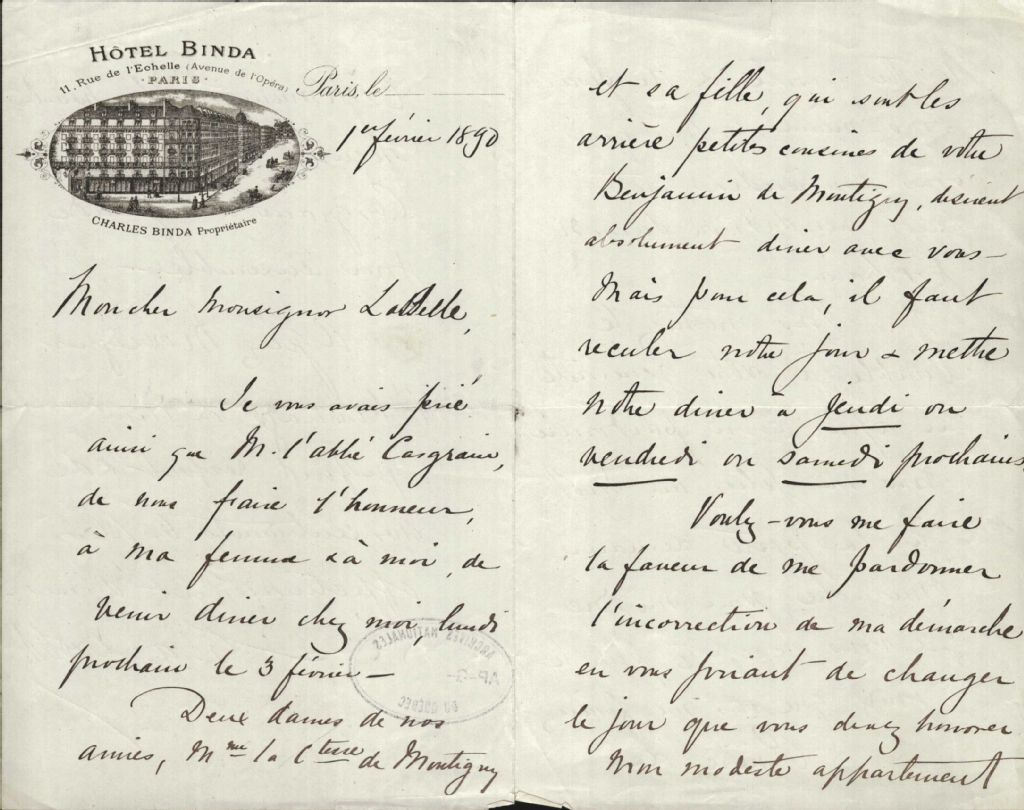 HÔTEL BINDA
11, Rue de l'Echelle (Avenue de l'Opéra)
PARIS
CHARLES BINDA Propriétaire
Paris, le
1er février 1890
Mon cher Monsignor LaBelle,
Je vous avais prié
ainsi que M. l'abbé Casgrain,
de nous fraire l'honneur,
à ma femme & à moi, de
venir diner chez moi lundi
prochain le 3 février —
Deux dames de nos
amies, Mme la Ctesse de Montigny
ARCHIVES NATIONALES
AP-G-
DU QUÉBEC
et sa fille, qui sont les
arrière petites cousines de votre
Benjamin de Montigny, désirent
absolument diner avec vous —
Mais pour cela, il faut
reculer notre jour & mettre
notre diner à jeudi ou
vendredi ou samedi prochains
Voulez-vous me faire
la faveur de me pardonner
l'incorrection de ma démarche
en vous priant de changer
le jour que vous devez honorer
mon modeste appartement